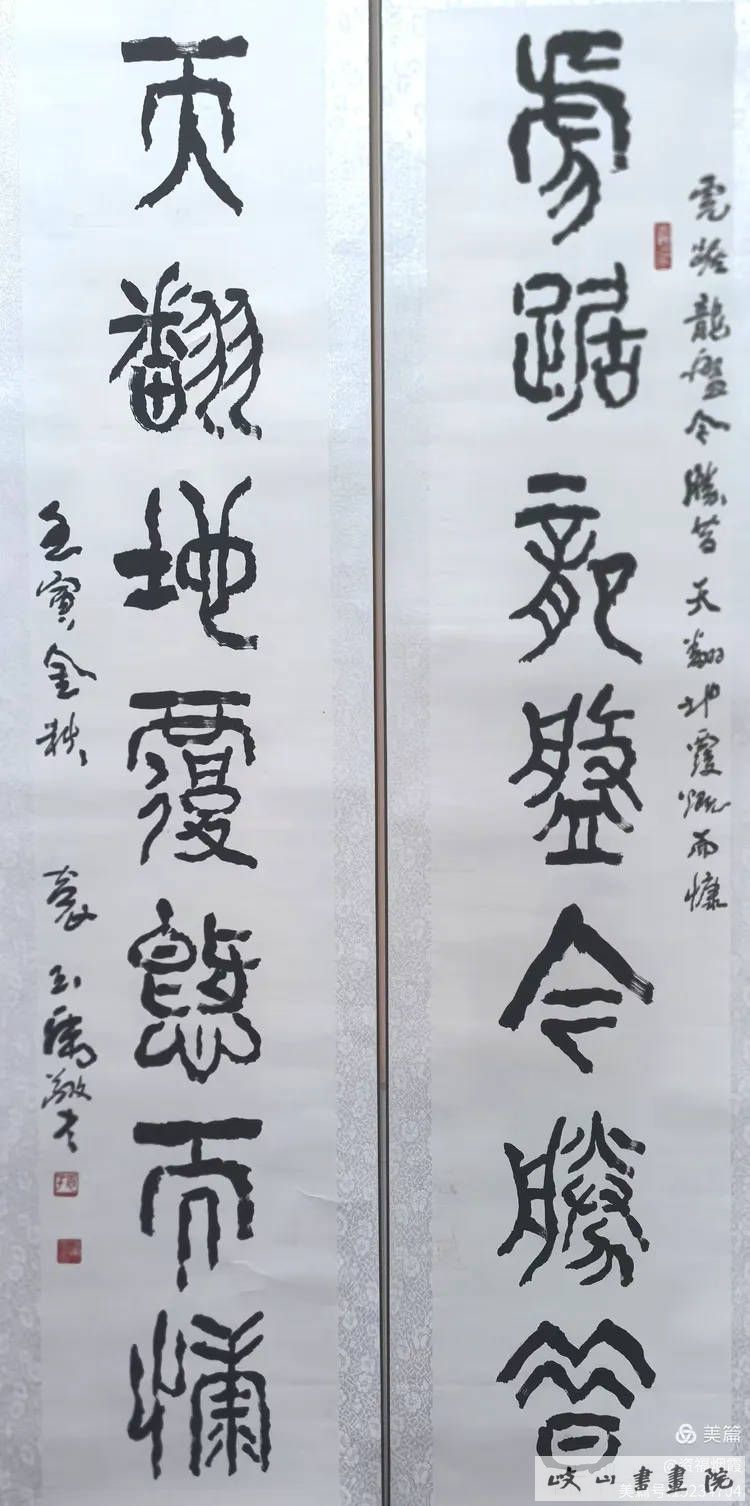 虎踞龍盤今勝昔
虎踞龍盤今勝昔 天翻地覆慨而慷
天翻地覆慨而慷
壬寅金秋
美篇
岐山書畫院